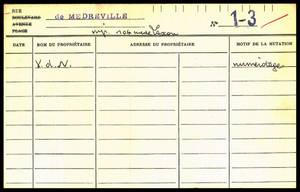 RUE
BOULEVARD
AVENUE
PLACE
de MEDREVILLE
N° 1-3
DATE
NOM DU PROPRIÉTAIRE
ADRESSE DU PROPRIÉTAIRE
MOTIF DE LA MUTATION
V. d. N.
numérotage